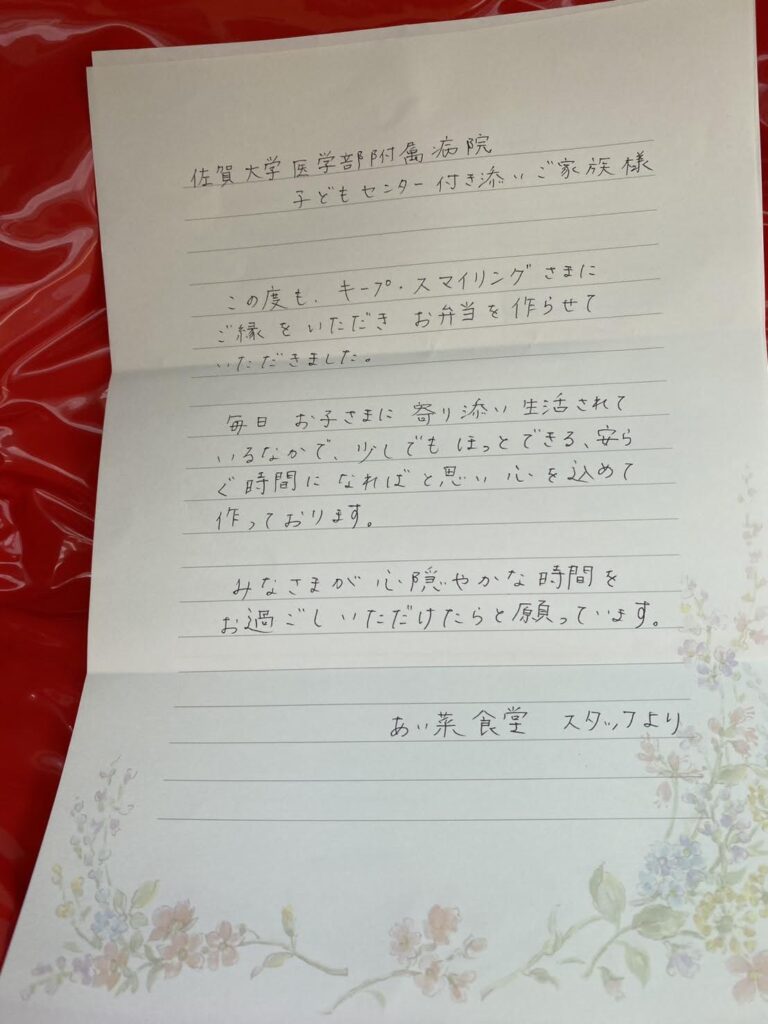 佐賀大学医学部附属病院
子どもセンター付き添いご家族様
この度も、キープ・スマイリングさまに
ご縁をいただき お弁当を作らせて
いただきました。
毎日 お子さまに 寄り添い 生活されて
いるなかで、少しでも ほっとできる、安ら
ぐ時間に なればと思い 心を込めて
作っております。
みなさまが 心隠やかな時間を
お過ごしいただけたらと願っています。
あい菜食堂 スタッフより